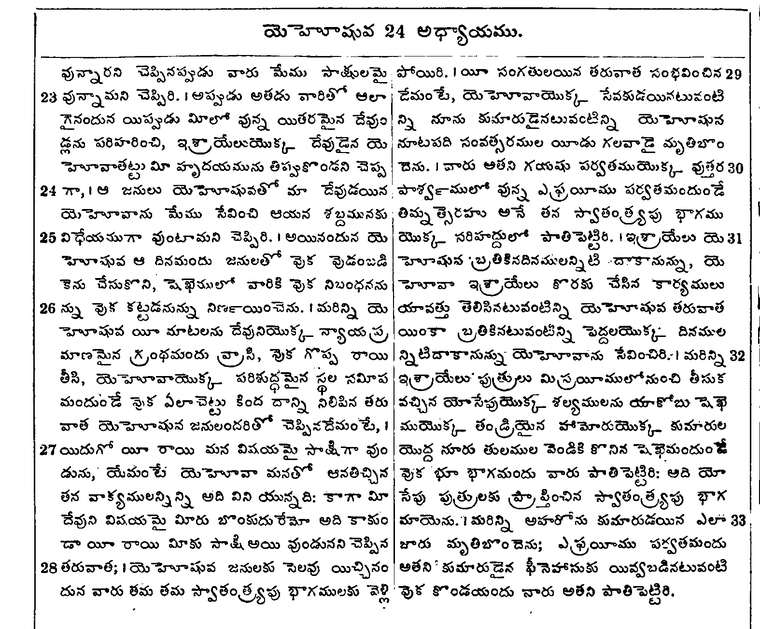 యెహోషువ 24 అధ్యాయము.
వున్నారని చెప్పినప్పుడు వారు మేము సాక్షులమై
23 వున్నామని చెప్పిరి. । అప్పుడు అతడు వారితో ఆలా
గైనందున యిప్పుడు మీలో వున్న యితరమైన దేవుం
డ్లను పరిహరించి, ఇశ్రాయేలుయొక్క దేవుడైన యె
హోవాతట్టు మీ హృదయమును తిప్పుకొండని చెప్ప
24 గా, । ఆ జనులు యెహోషువతో మా దేవుడయిన
యెహోవాను మేము సేవించి ఆయన శబ్దమునకు
25 విధేయముగా వుంటామని చెప్పిరి. । అయినందున యె
హోషువ ఆ దినమందు జనులతో వొక వుడంబడి
కెను చేసుకొని, షెఖెములో వారికి వొక నిబంధనను
26 న్ను వొక కట్టడనున్ను నిర్ణయించెను. । మరిన్ని యె
హోషువ యీ మాటలను దేవునియొక్క న్యాయప్ర
మాణమైన గ్రంథమందు వ్రాసి, వొక గొప్ప రాయి
తీసి, యెహోవాయొక్క పరిశుద్ధమైన స్థల సమీప
మందుండే వొక ఏలాచెట్టు కింద దాన్ని నిలిపిన తరు
వాత యెహోషువ జనులందరితో చెప్పినదేమంటే, ।
27 యిదుగో యీ రాయి మన విషయమై సాక్షిగా వుం
డును, యేమంటే యెహోవా మనతో ఆనతిచ్చిన
తన వాక్యములన్నిన్ని అది విని యున్నది: కాగా మీ
దేవుని విషయమై మీరు బొంకుదురేమో అది కాకుం
డా యీ రాయి మీకు సాక్షి అయి వుండునని చెప్పిన
28 తరువాత; । యెహోషువ జనులకు సెలవు యిచ్చినం
దున వారు తమ తమ స్వాతంత్ర్యపు భాగములకు వెళ్లి
పోయిరి. । యీ సంగతులయిన తరువాత సంభవించిన 29
దేమంటే, యెహోవాయొక్క సేవకుడయినటువంటి
న్ని నూను కుమారుడైనటువంటిన్ని యెహోషున
నూటపది సంవత్సరముల యీడు గలవాడై మృతిబొం
దెను. । వారు అతని గయషు పర్వతముయొక్క వుత్తర 30
పార్శ్వములో వున్న ఎఫ్రయీము పర్వతమందుండే
తిమ్నత్సెరహు అనే తన స్వాతంత్ర్యపు భాగము
యొక్క సరిహద్దులో పాతిపెట్టిరి. । ఇశ్రాయేలు యె 31
హోషువ బ్రతికినదినములన్నిటి దాకానున్ను, యె
హోవా ఇశ్రాయేలు కొరకు చేసిన కార్యములు
యావత్తు తెలిసినటువంటిన్ని యెహోషువ తరువాత
యింకా బ్రతికినటువంటిన్ని పెద్దలయొక్క దినముల
న్నిటిదాకానున్ను యెహోవాను సేవించిరి. । మరిన్ని 32
ఇశ్రాయేలు పుత్రులు మిస్రయీములోనుంచి తీసుక
వచ్చిన యోసేపుయొక్క శల్యములను యాకోబు షెఖె
ముయొక్క తండ్రియైన హామోరుయొక్క కుమారుల
యొద్ద నూరు తులముల వెండికి కొనిన షెఖెమందుండే
వొక భూ భాగమందు వారు పాతిపెట్టిరి: అది యో
సేపు పుత్రులకు ప్రాప్తించిన స్వాతంత్ర్యపు భాగ
మాయెను. । మరిన్ని అహరోను కుమారుడయిన ఎలా 33
జారు మృతిబొందెను; ఎఫ్రయీము పర్వతమందు
అతని కుమారుడైన ఫీనెహాసుకు యివ్వబడినటువంటి
వొక కొండయందు వారు అతని పాతిపెట్టిరి.